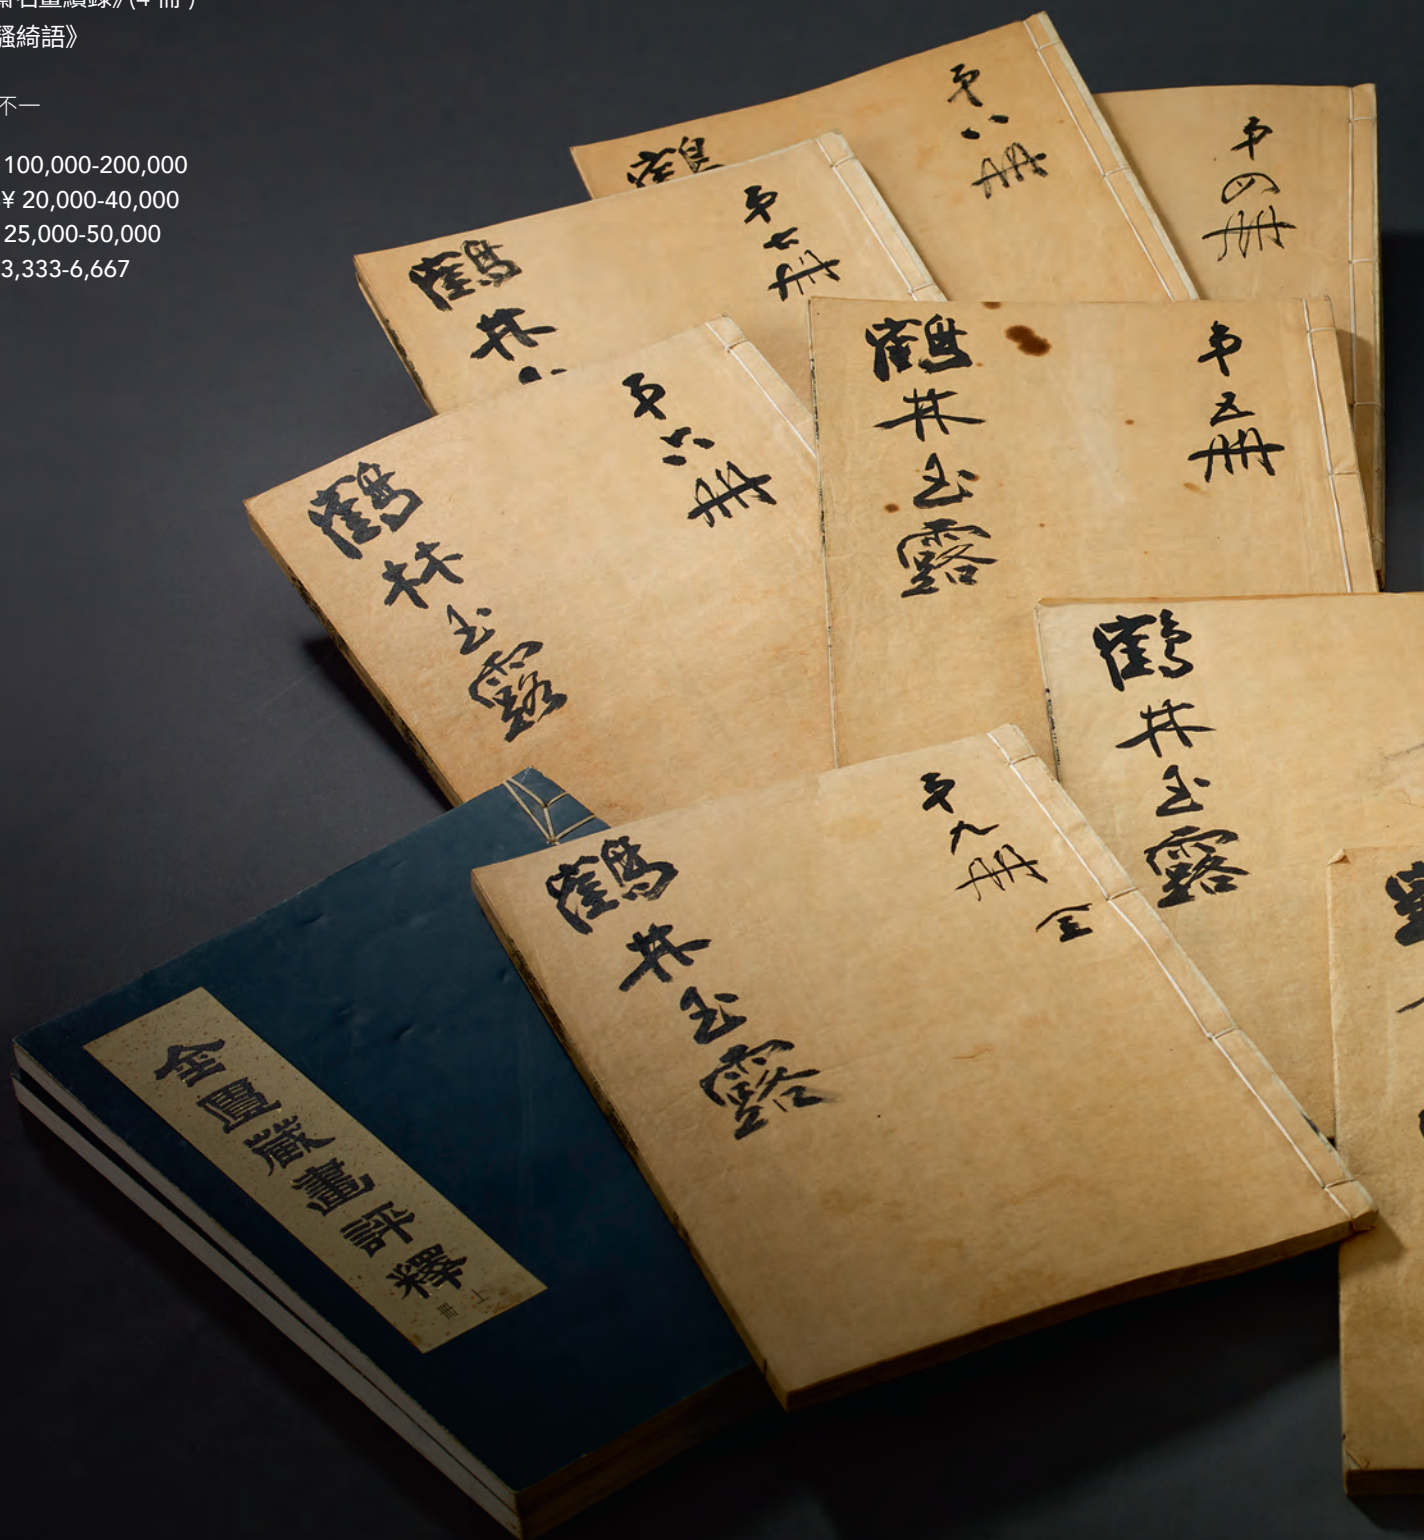 名畫續錄》(4 冊 )
騷綺語》
不一
100,000-200,000
¥ 20,000-40,000
25,000-50,000
3,333-6,667
第四冊
第八冊
第七冊
鶴林
第五冊
鶴林玉露
第六冊
鶴林玉露
鶴林玉露
第九冊 全
鶴林玉露
金匱藏畫評釋 上冊